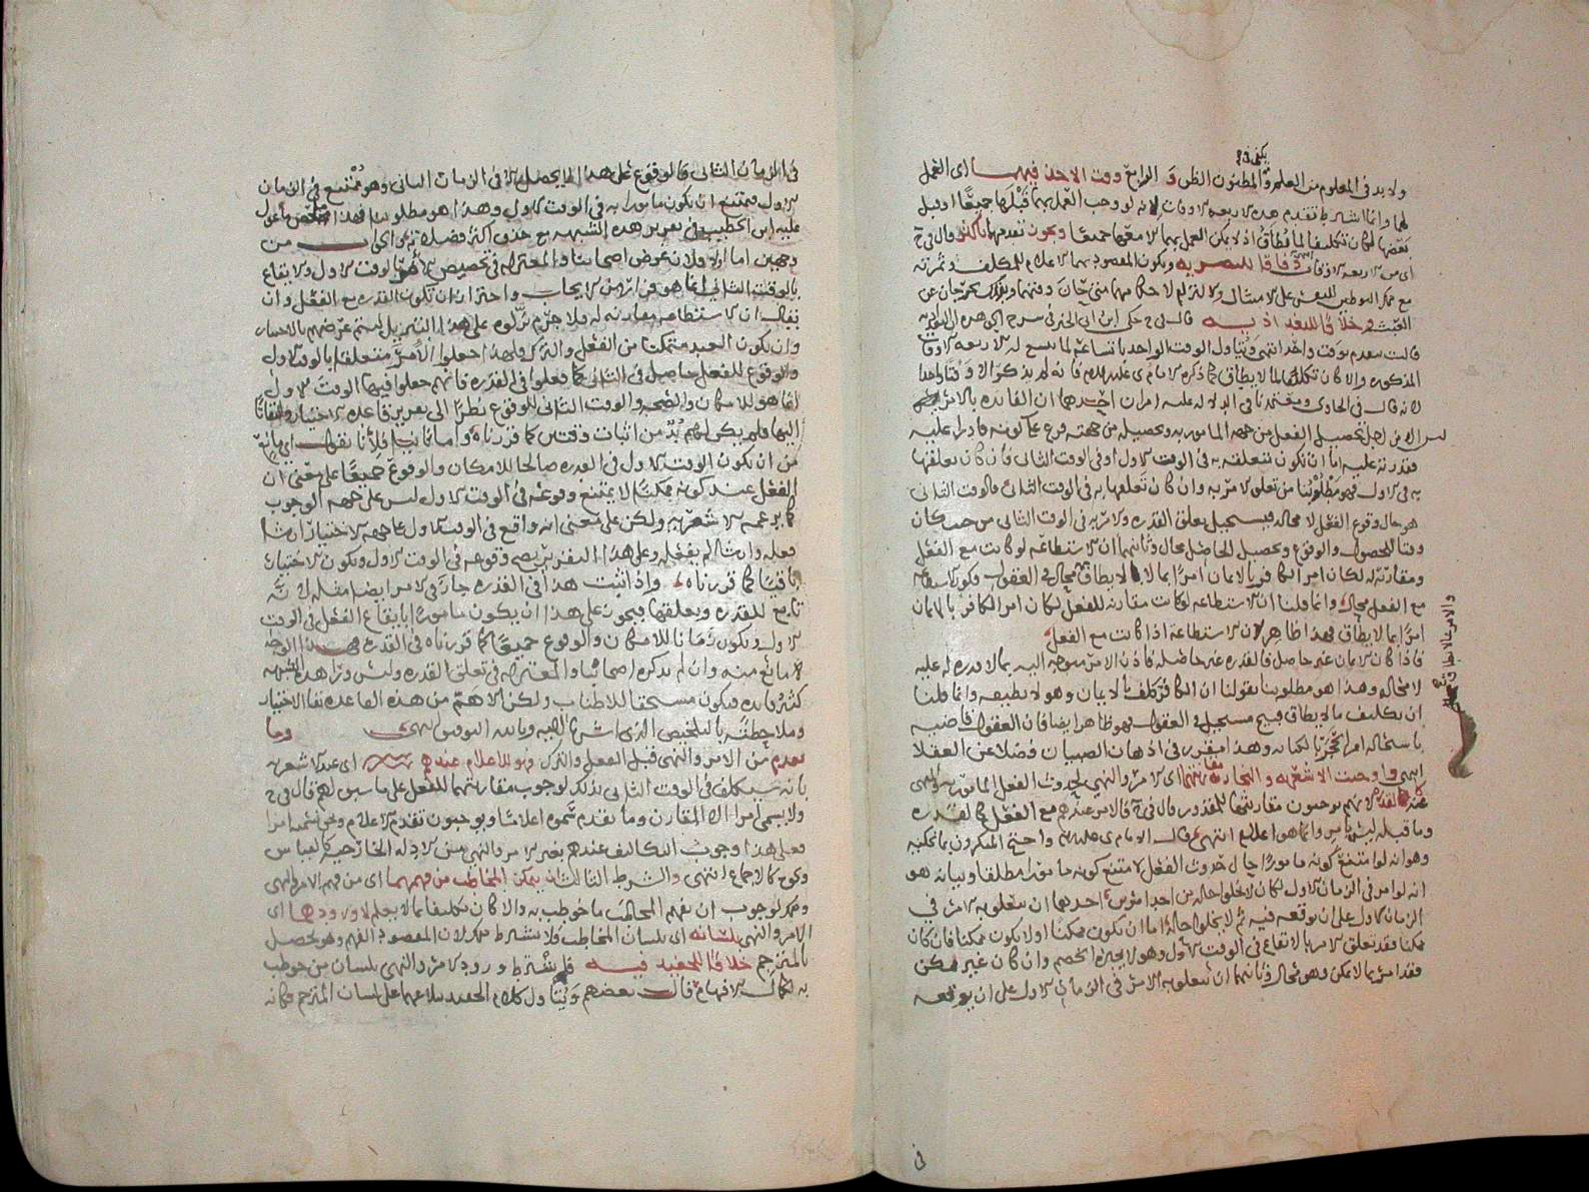 يكفي في
ولا بد في المعلوم من العلم و المظنون الظن و الرابع وقت الاخذ فيهما اي العمل
لهما وانما اشترط تقدم هذه الاربعة الاوقات لانه لو وجب العمل بهما قبلها جميعا او قبل
بعضها لكان تكليفا لما لا يطاق اذ لا يمكن العمل بهما الا معها جميعا ويجوز تقدمهما باكثر قال في ح
اي من الاربعة الاوقات وفاقا للبصرية ويكون المقصود بهما الاعلام للمكلف وثمرته
العبث خلافا للبغداذية قال في ح حكى ابن ابي الخير في شرح
قالت بتقدم بوقت واحد انتهى ويتاول الوقت الواحد باتساعه لما يتسع له الاربعة الاوقات
المذكورة والا كان تكليفا لما لا يطاق كما ذكره الامام ي عليه السلام فانه لم يذكر الا وقتا واحدا
لانه قال في الحاوي ومعتمدنا في الدلالة عليه امران احدهما ان الفائدة بالامر
ليس الا من اجل تحصيل الفعل من جهة المامور به وتحصيله من جهته فرع على كونه قادرا عليه
فقدرته عليه اما ان تكون متعلقة به في الوقت الاول او في الوقت الثاني فان كان تعلقها
به في الاول فهو مطلوبنا من تعلق الامر به وان كان تعلقها به في الوقت الثاني فالوقت الثاني
هو حال وقوع الفعل لا محالة فيستحيل تعلق القدرة والامر به في الوقت الثاني من حيث كان
وقتا للحصول والوقوع وتحصيل الحاصل محال وثانيهما ان الاستطاعة لو كانت مع الفعل
ومقارنة له لكان امر الكافر بالايمان امرا بما لا يطاق
مع الفعل محال وانما قلنا ان الاستطاعة لو كانت مقارنة للفعل لكان امر الكافر بالايمان
امرا بما لا يطاق فهذا ظاهر لان الاستطاعة اذا كانت مع الفعل
فاذا كان الايمان غير حاصل فالقدرة غير حاصلة فاذن الامر متوجه اليه بما لا قدرة له عليه
لا محالة وهذا هو مطلوبنا بقولنا ان الكافر كلف بالايمان وهو لا يطيقه وانما قلنا
ان تكليف ما لا يطاق قبيح مستحيل في العقول فهو ظاهر ايضا فان العقول قاضية
وهذا امر مقرر في اذهان الصبيان فضلا عن العقلا
انتهى واوجبت الاشعرية و النجارية مقارنتهما اي الامر والنهي لحدوث الفعل المامور به والمنهى
عنه كالقدرة لانهم يوجبون مقارنتها للمقدور قال في ح فالامر عندهم مع الفعل كالقدرة
وما قبله ليس بامر وانما هو اعلام انتهى قال الامام ي عليلم واحتج المنكرون بما تمكنه
وهو انه لو امتنع كونه مامورا حال حدوث الفعل لامتنع كونه مامورا مطلقا وبيانه هو
انه لو امر في الزمان الاول لكان لا يخلو حاله من احد امرين احدهما ان يتعلق به الامر في
الزمان الاول على ان يوقعه فيه ثم لا يخلو حاله اما ان يكون ممكنا او لا يكون ممكنا فان كان
ممكنا فقد تعلق الامر بالايقاع في الوقت الاول وهو لا يجيزه الخصم وان كان غير ممكن
فقد امر بما لا يمكن وهو محال وثانيهما ان يتعلق به الامر في الزمان الاول على ان يوقعه
والامر بما لا يطاق قبيح
في
في الزمان الثاني فالوقوع على هذا انما يحصل الا في الزمان الثاني وهو ممتنع في الزمان
الاول فيمتنع ان يكون مامورا به في الوقت الاول وهذا هو مطلوبنا فهذا ملخص ما عول
عليه ابن الخطيب في تقرير هذه الشبهة مع حذف اكثر فضلاته والجواب من
وجهين اما اولا فلان غرض اصحابنا والمعتزلة في تخصيص الامر بالوقت الاول والايقاع
بالوقت الثاني انما هو فرار من الايجاب واحترازا ان تكون القدرة مع الفعل وان
يقال ان الاستطاعة مقارنة له فلا جرم نزلوه على هذا التنزيل ليتم غرضهم بالاختيار
وان يكون العبد متمكنا من الفعل والترك فلهذا جعلوا الامر متعلقا بالوقت الاول
والوقوع للفعل حاصل في الثاني كما فعلوا في القدرة فانهم جعلوا فيها الوقت الاول
انما هو للامكان والصحة والوقت الثاني للوقوع نظرا الى تقرير قاعدة الاختيار والتفاتا
اليها فلم يكن لهم بد من اثبات وقتين كما قررناه واما ثانيا فلانا نقول اي مانع
من ان يكون الوقت الاول في القدرة صالحا للامكان والوقوع جميعا على معنى ان
الفعل عند كونه ممكنا لا يمتنع وقوعه في الوقت الاول ليس على جهة الوجوب
كما يزعمه الاشعرية ولكن على معنى انه واقع في الوقت الاول على جهة الاختيار ان شا
فعله وان شا لم يفعله وعلى هذا التقرير يصح وقوعه في الوقت الاول ويكون الاختيار
باقيا كما قررناه واذا ثبت هذا في القدرة جاز في الامر ايضا مثله لانه
تابع للقدرة وتعلقها فيجوز على هذا ان يكون مامورا بايقاع الفعل في الوقت
الاول ويكون زمانا للامكان والوقوع جميعا كما قررناه في القدرة فهذا الوجه
لا مانع منه وان لم يذكره اصحابنا والمعتزلة في تعلق القدرة وليس ورا هذه الشبهة
كثير فائدة فيكون مستحقا للاطناب ولكن الاهم من هذه القاعدة نفا الاختيار
وملاحظته بالتلخيص الذي اشرنا اليه وبالله التوفيق انتهى وما
تقدم من الامر والنهي قبل الفعل والترك فهو للاعلام عندهم اي عند الاشعرية
بانه سيكلف في الوقت الثاني بذلك لوجوب مقارنتهما للفعل على ما سبق لهم قال في ح
ولا يسمى امرا الا المقارن وما تقدم سموه اعلاما ويوجبون تقدم الاعلام
فعلى هذا وجوب التكاليف عندهم بغير الامر والنهي من الادلة الخارجية كالقياس
ونحوه كالاجماع انتهى والشرط الثالث ان يمكن المخاطب من فهمهما اي من فهم الامر والنهي
وذلك لوجوب ان يفهم المخاطب ما خوطب به والا كان تكليفا بما لا يعلم لا ورودهما اي
الامر والنهي بلسانه اي بلسان المخاطب فلا يشترط ذلك لان المقصود الفهم وهو يحصل
بالمترجم خلافا للحفيد فيه فيشترط ورود الامر والنهي بلسان من خوطب
به لكمال الافهام قال بعضهم ويتاول كلام الحفيد على لسان المترجم فكانه